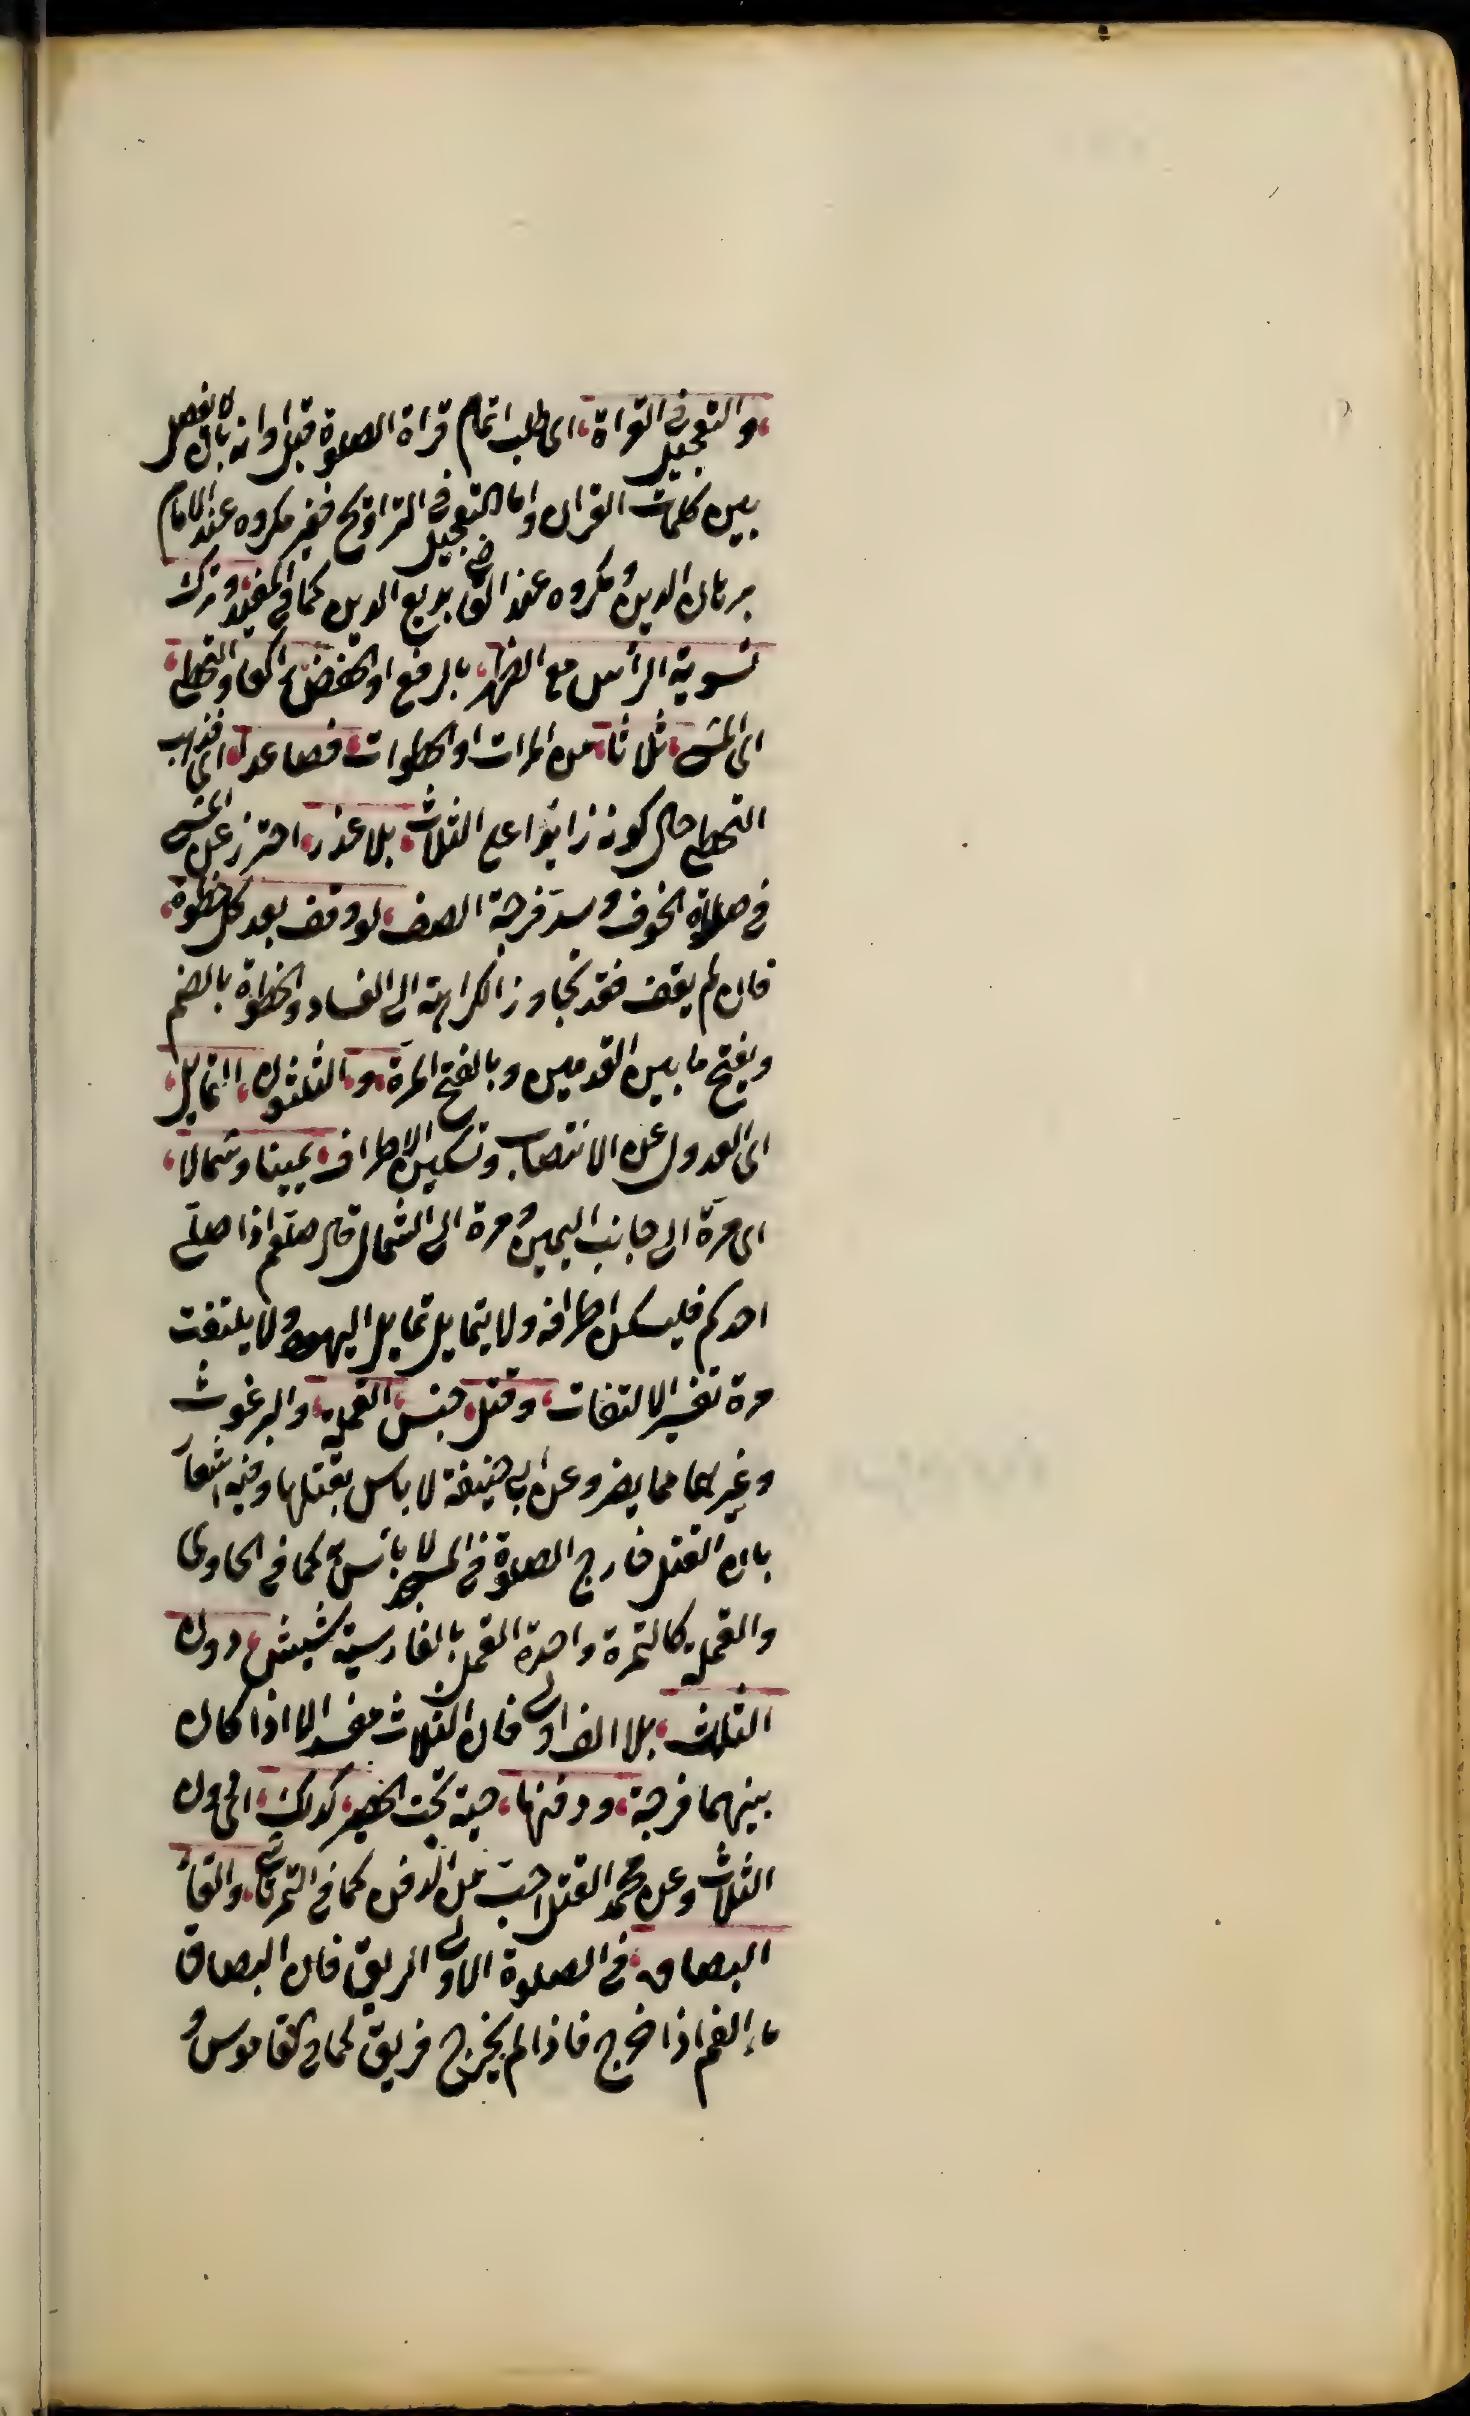 والتعجيل فى القراة اى طلب اتمام قراة الصلوة قبل اوانه بان لا يفصل
بين كلمات القران واما التعجيل فى التراويح فغير مكروه عند الامام
برهان الدين ومكروه عند القاضى بديع الدين كما فى المفيد وترك
تسوية الرأس مع الظهر بالرفع او الخفض راكعا والتخطى
اى المشى ثلاثا من المرات او الخطوات فصاعدا اى فذهب
التخطى حال كونه زايدا على الثلاث بلا عذر احترز عن المشى
فى صلاة الخوف وسد فرجة الصف لو وقف بعد كل خطوة
فان لم يقف فقد تجاوز الكراهة الى الفساد والخطوة بالضم
ويفتح ما بين القدمين وبالفتح المرة والثلثون التمايل
اى العدول عن الانتصاب وتسكين الاطراف يمينا وشمالا
اى مرة الى جانب اليمين ومرة الى الشمال قال صلعم اذا صلى
احدكم فليسكن اطرافه ولا يتمايل تمايل اليهود ولا يلتفت
مرة تفسير الالتفات وقتل جنس القملة والبرغوث
وغيرهما مما يضر وعن ابى حنيفة لا باس بقتلها وفيه اشعار
بان القتل خارج الصلوة فى المسجد لا بأس به كما فى الحاوى
والقملة كالتمرة واحدة القمل بالفارسية شپش دون
الثلاث بلا الف اولى فان الثلاث مفسد الا اذا كان
بينهما فرجة ودفنها حية تحت الحصير كذلك اى دون
الثلاث وعن محمد القتل احب من الدفن كما فى التمرتاشى والقاء
البصاق فى الصلوة الاولى الريق فان البصاق
ماء الفم اذا خرج فاذا لم يخرج فريق كما فى القاموس و